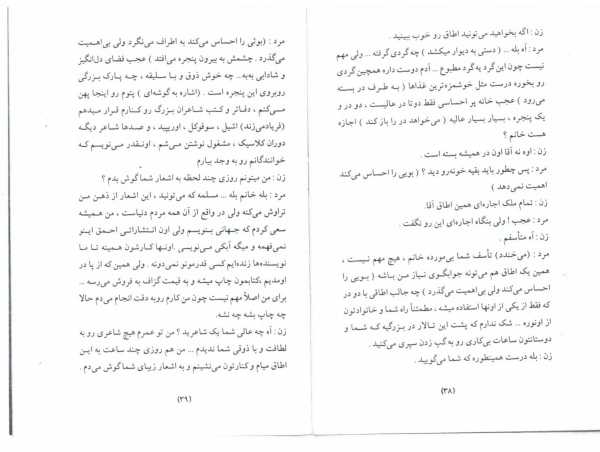 زن : اگه بخواهید می‌تونید اطاق رو خوب ببینید .
مرد : آه بله ... ( دستی به دیوار میکشد ) چه گردی گرفته ... ولی مهم
نیست چون این گرد یه گرد مطبوع ... آدم دوست داره همچین گردی
رو بخوره درست مثل خوشمزه‌ترین غذاها ( به طرف در بسته
می‌رود ) عجب خانه پر احساسی فقط دوتا در عالیست ، دو در و
یک پنجره ، بسیار بسیار عالیه ( می‌خواهد در را باز کند ) اجازه
هست خانم ؟
زن : اوه نه آقا اون در همیشه بسته است .
مرد : پس چطور باید بقیه خونه‌رو دید ؟ ( بویی را احساس می‌کند
اهمیت نمی‌دهد )
زن : تمام ملک اجاره‌ای همین اطاق آقا .
مرد : عجب ! ولی بنگاه اجاره‌ای این رو نگفت .
زن : آه متأسفم .
مرد : ( می‌خندد ) تأسف شما بی‌مورده خانم ، هیچ مهم نیست ،
همین یک اطاق هم می‌تونه جوابگوی نیاز من باشه ( بویی را
احساس می‌کند ولی بی‌اهمیت می‌گذرد ) چه جالب اطاقی با دو در
که فقط از یکی از اونها استفاده میشه . مطمئناً راه شما و خانوادتون
از اونوره .. شک ندارم که پشت این تالار در بزرگیه که شما و
دوستانتون ساعات بی‌کاری رو به گپ زدن سپری می‌کنید .
زن : بله درست همینطوره که شما می‌گویید .
(۳۸)
مرد : ( بوئی را احساس می‌کند به اطراف می‌نگرد ولی بی‌اهمیت
می‌گذرد . چشمش به بیرون پنجره می‌افتد ) عجب فضای دل‌انگیز
و شادابی به‌به.. چه خوش ذوق و با سلیقه ، چه پارک بزرگی
روبروی این پنجره است . ( اشاره به گوشه‌ای ) پتوم رو اینجا پهن
می‌کنم ، دفاتر و کتب شاعران بزرگ رو کنارم قرار میدهم
(فریادمی‌زند) اشیل ، سوفوکل ، اوریپید ، و صدها شاعر دیگه
دوران کلاسیک ، مشغول نوشتن می‌شم ، اونقدر می‌نویسم که
خوانندگانم رو به وجد بیارم
زن : من میتونم روزی چند لحظه به اشعار شما گوش بدم ؟
مرد : بله خانم بله ... مسلمه که می‌تونید ، این اشعار از ذهن من
تراوش می‌کنه ولی در واقع از آن همه مردم دنیاست ، من همیشه
سعی کردم که جهانی بنویسم ولی اون انتشاراتی احمق اینو
نمی‌فهمه و میگه آبکی می‌نویسی . اونها کارشون همینه تا با
نویسنده‌ها زنده‌ایم کسی قدرمونو نمی‌دونه . ولی همین که از پا در
اومدیم ،کتابمون چاپ میشه و به قیمت گزاف به فروش می‌رسه ..
برای من اصلاً مهم نیست چون من کارم رو به دقت انجام می‌دم حالا
چه چاپ بشه چه نشه.
زن : آه چه عالی شما یک شاعرید ؟ من تو عمرم هیچ شاعری رو به
لطافت و با ذوقی شما ندیدم ... من هم روزی چند ساعت به این
اطاق میام و کنارتون می‌نشینم و به اشعار زیبای شما گوش می‌دم .
(۳۹)